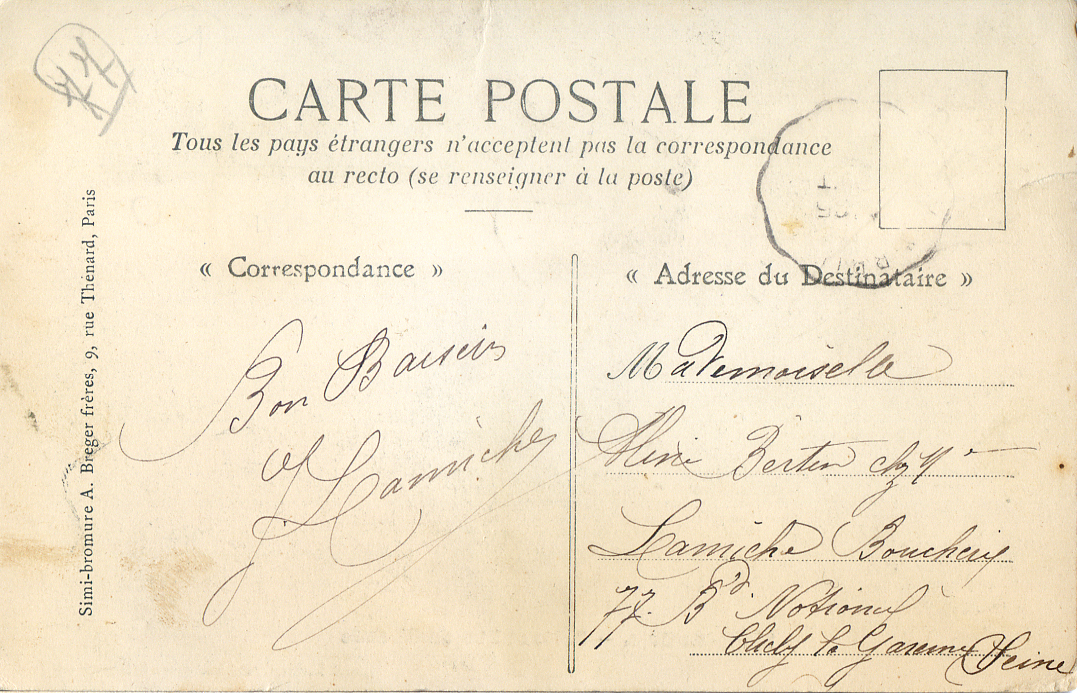 CARTE POSTALE
Tous les pays étrangers n'acceptent pas la correspondance
au recto (se renseigner à la poste)
« Correspondance »
Bon Baiseirs
J. Lamiche
« Adresse du Destinataire »
Mademoiselle
Bertin chez Mme
Lamiche Boucherie
77. Bd. National
Clichy la Garenne (Seine
Simi-bromure A. Breger frères, 9, rue Thénard, Paris